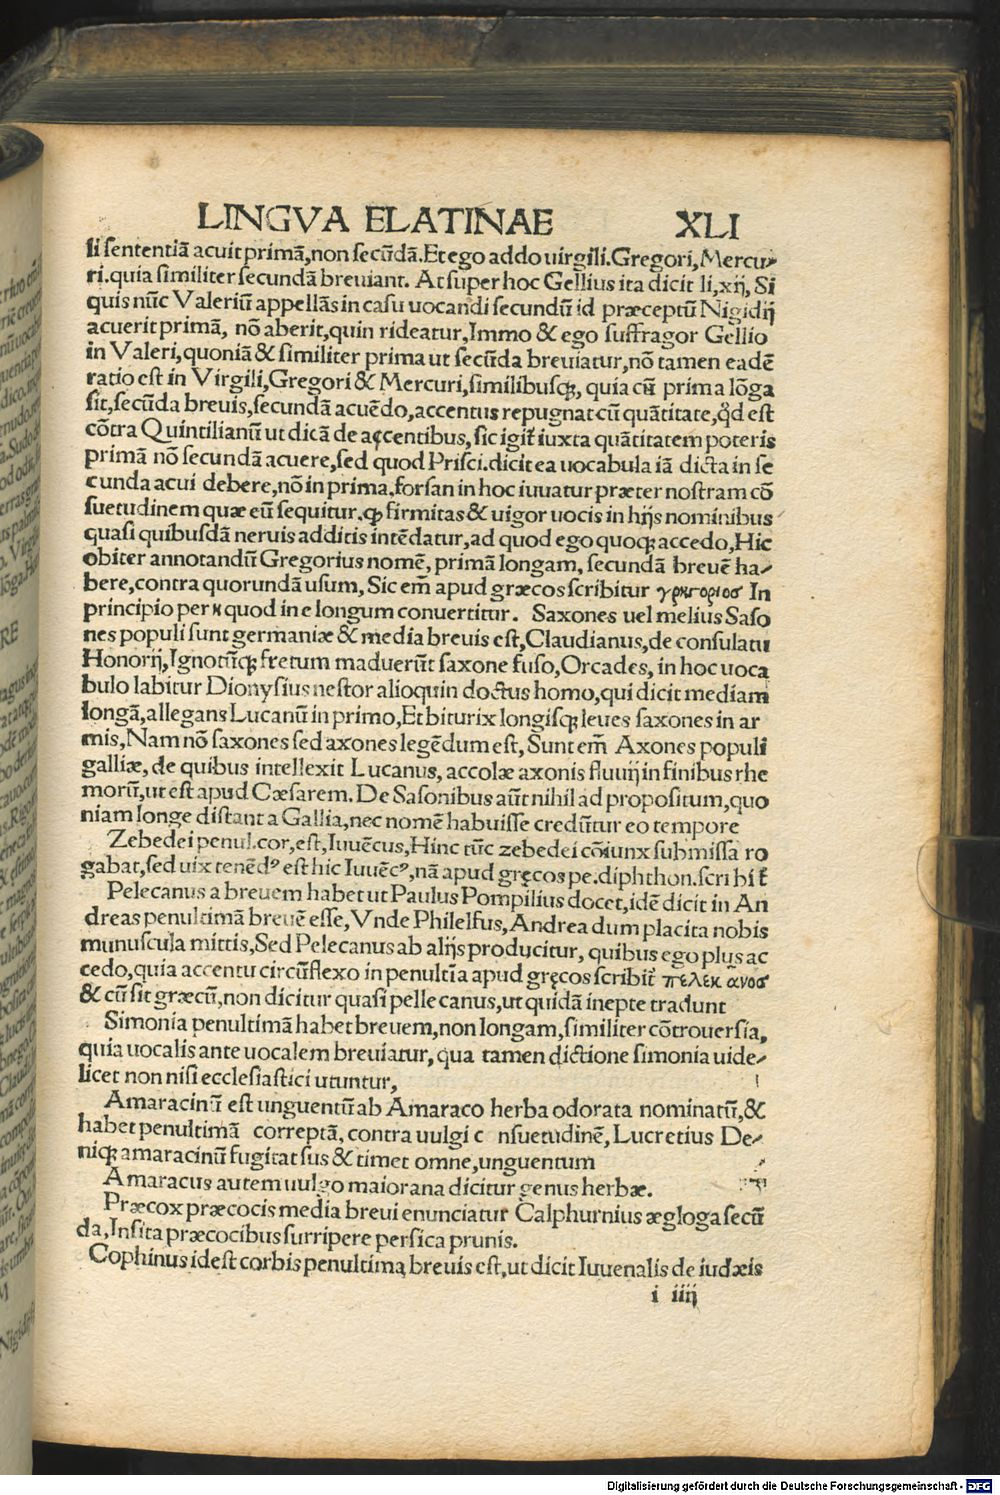 LINGVA ELATINAE XLI
li sententiā acuit primā, non secūdā. Et ego addo uirgili. Gregori, Mercu-
ri. quia similiter secundā breuiant. At super hoc Gellius ita dicit li, xij, Si
quis nūc Valeriū appellās in casu uocandi secundū id præceptū Nigidij
acuerit primā, nō aberit, quin rideatur, Immo & ego suffragor Gellio
in Valeri, quoniā & similiter prima ut secūda breuiatur, nō tamen eadē
ratio est in Virgili, Gregori & Mercuri, similibusq;, quia cū prima lōga
sit, secūda breuis, secundā acuēdo, accentus repugnat cū quātitate, qd est
cōtra Quintilianū ut dicā de accentibus, sic igit iuxta quātitatem poteris
primā nō secundā acuere, sed quod Prisci. dicit ea uocabula iā dicta in se
cunda acui debere, nō in prima. forsan in hoc iuuatur præter nostram cō
suetudinem quæ eū sequitur. ꝙ firmitas & uigor uocis in hijs nominibus
quasi quibusdā neruis additis intēdatur, ad quod ego quoq; accedo, Hic
obiter annotandū Gregorius nomē, primā longam, secundā breuē ha-
bere, contra quorundā usum, Sic em̄ apud græcos scribitur γρηγοριοσ In
principio per η quod in e longum conuertitur. Saxones uel melius Saso
nes populi sunt germaniæ & media breuis est, Claudianus, de consulatu
Honorij, Ignotūq; fretum maduerūt saxone fuso, Orcades, in hoc uoca
bulo labitur Dionysius nestor alioquin doctus homo, qui dicit mediam
longā, allegans Lucanū in primo, Et biturix longisq; leues saxones in ar
mis, Nam nō saxones sed axones legēdum est, Sunt em̄ Axones populi
galliæ, de quibus intellexit Lucanus, accolæ axonis fluuij in finibus rhe
morū, ut est apud Cæsarem. De Sasonibus aūt nihil ad propositum, quo
niam longe distant a Gallia, nec nomē habuisse credūtur eo tempore
Zebedei penul. cor, est, Iuuēcus, Hinc tūc zebedei cōiunx submissa ro
gabat, sed uix tenēdꝰ est hic Iuuēcꝰ, nā apud gręcos pe. diphthon. scri bit
Pelecanus a breuem habet ut Paulus Pompilius docet, idē dicit in An
dreas penultimā breuē esse, Vnde Philelfus, Andrea dum placita nobis
munuscula mittis, Sed Pelecanus ab alijs producitur, quibus ego plus ac
cedo, quia accentu circūflexo in penultīa apud gręcos scribit πελεκ ᾶνοσ
& cū sit græcū, non dicitur quasi pelle canus, ut quidā inepte tradunt
Simonia penultimā habet breuem, non longam, similiter cōtrouersia,
quia uocalis ante uocalem breuiatur, qua tamen dictione simonia uide-
licet non nisi ecclesiastici utuntur,
Amaracinū est unguentū ab Amaraco herba odorata nominatū, &
habet penultimā correptā, contra uulgi c nsuetudinē, Lucretius De-
niq; amaracinū fugitat sus & timet omne, unguentum
Amaracus autem uulgo maiorana dicitur genus herbæ.
Præcox præcocis media breui enunciatur Calphurnius ægloga secū
da, Insita præcocibus surripere persica prunis.
Cophinus idest corbis penultima breuis est, ut dicit Iuuenalis de iudæis
i iiij
Digitalisierung gefördert durch die Deutsche Forschungsgemeinschaft - DFG